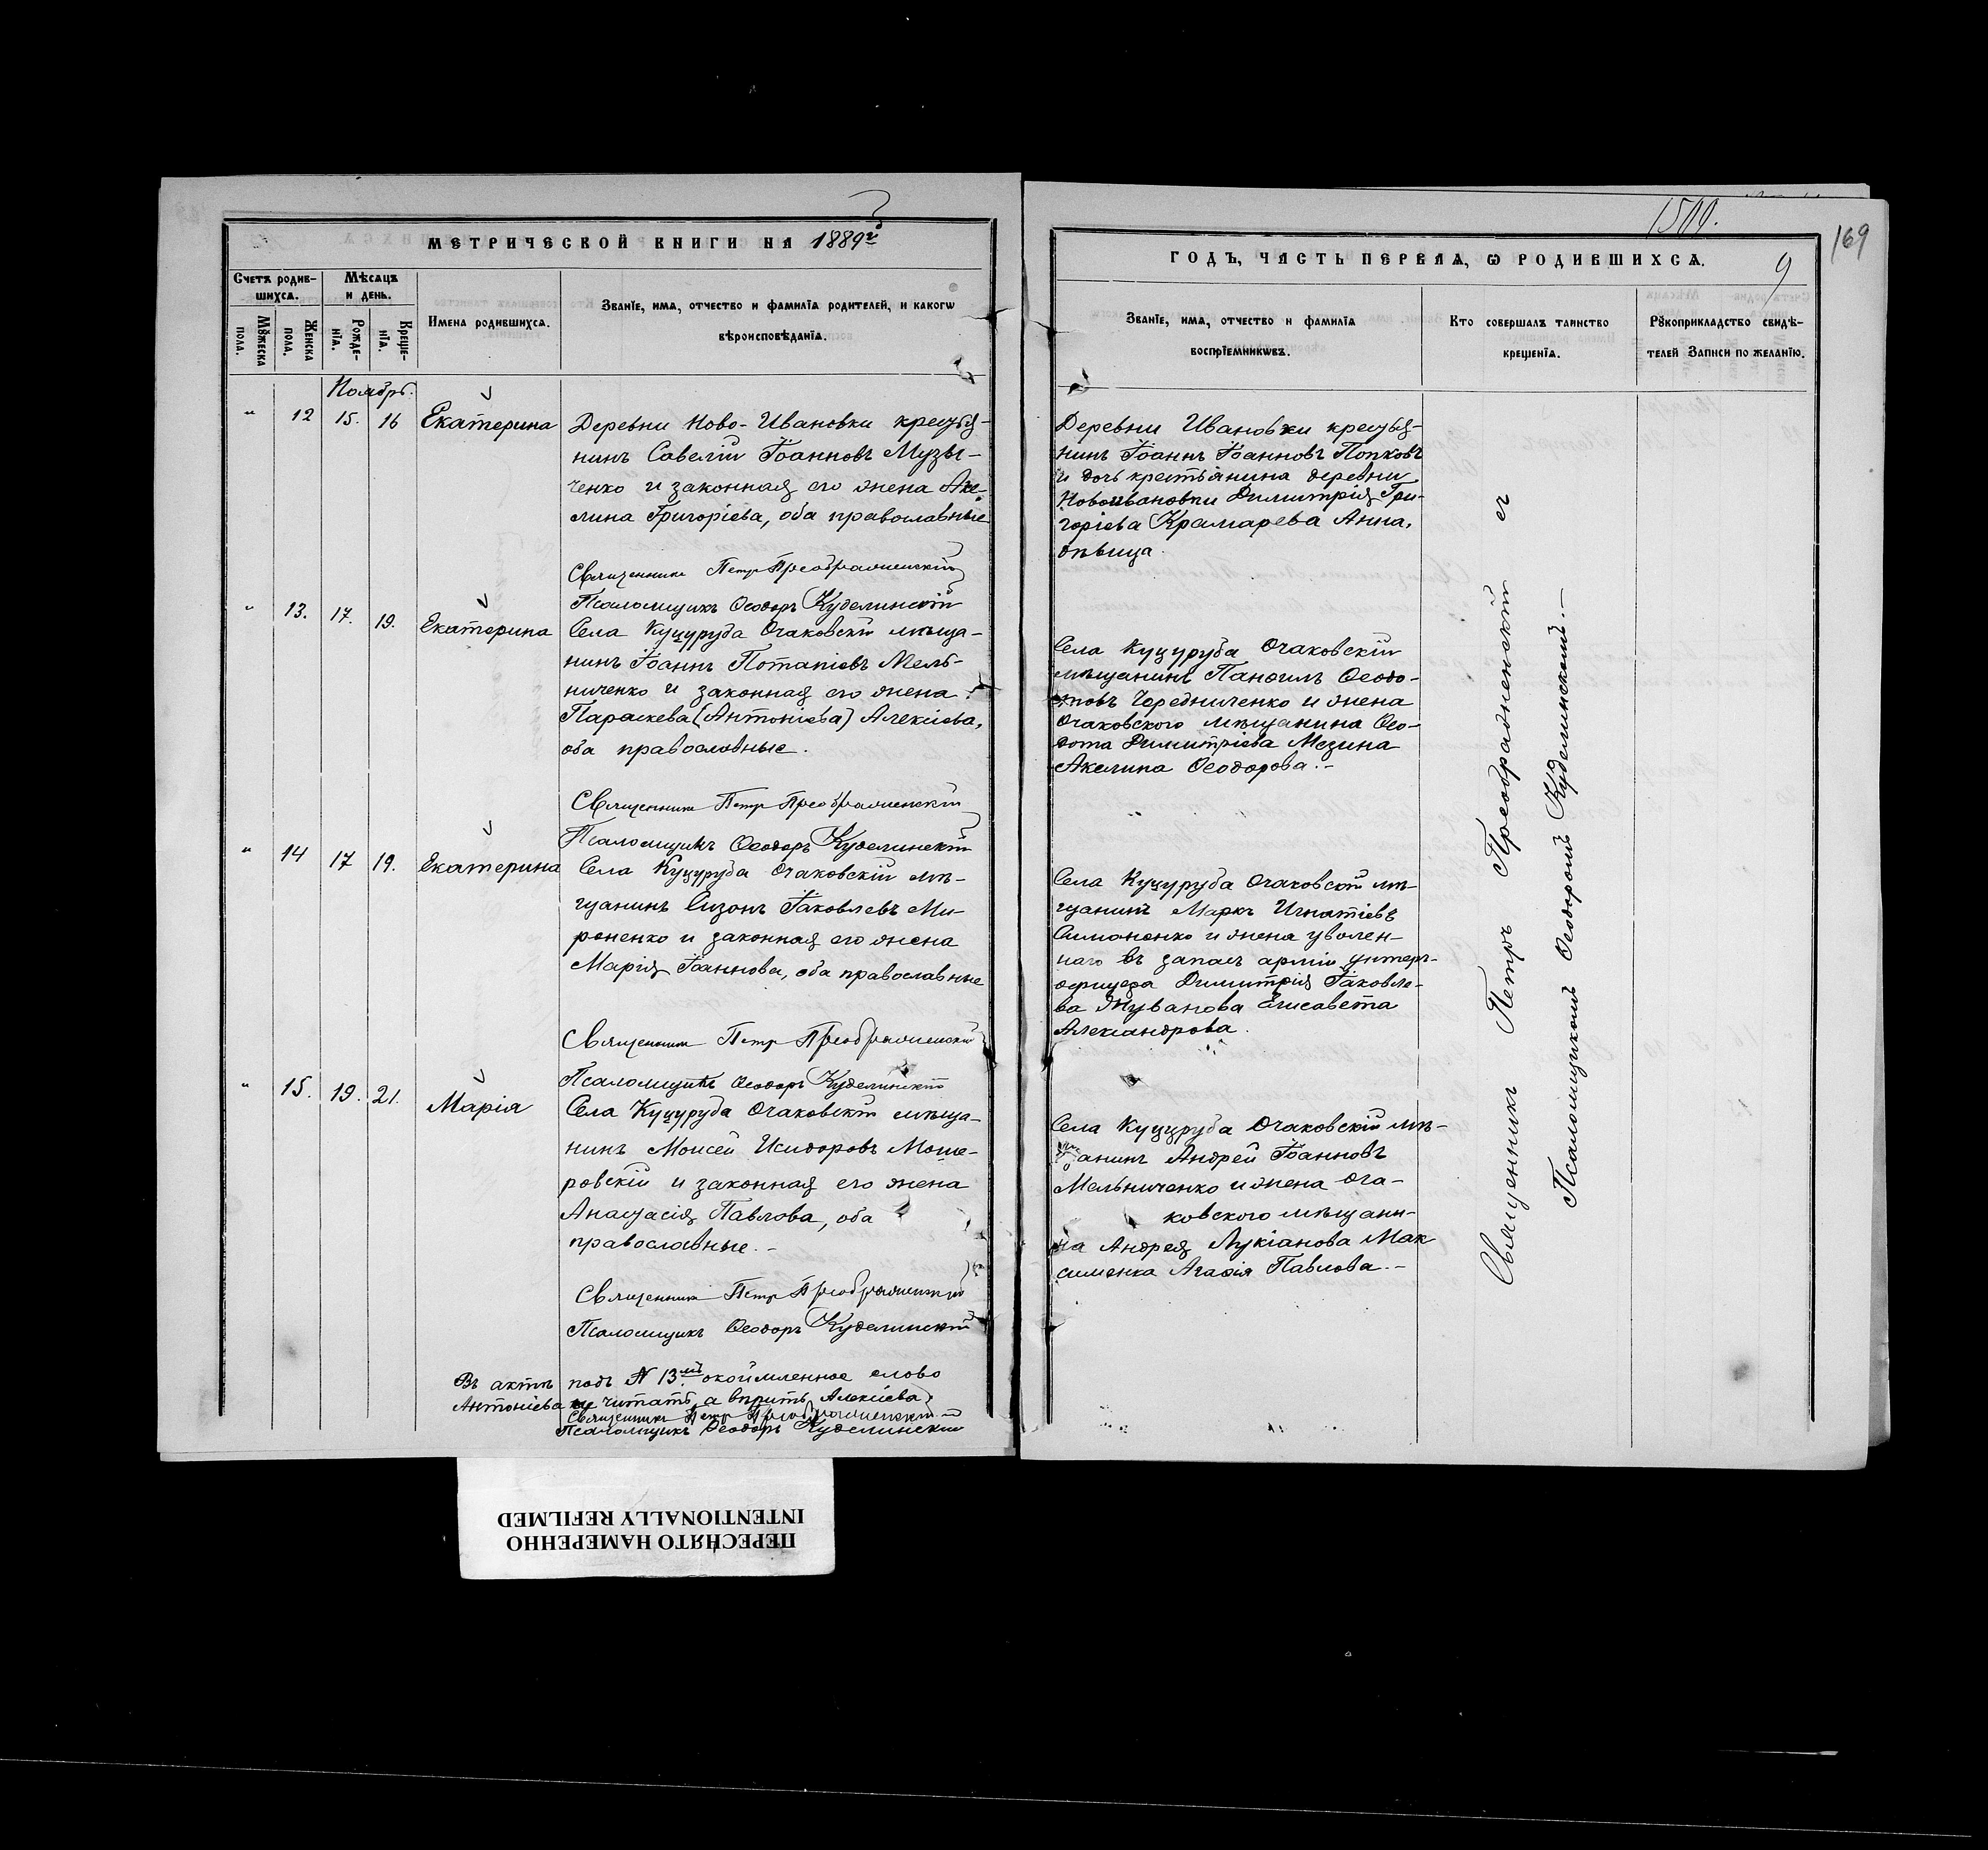 МЕТРИЧЕСКОЙ КНИГИ НА 1889 г.
Счетъ родив-
шихся.
Мѣсяцъ
и день.
Мꙋжеска
пола.
Женска
пола.
Рожде-
нїя.
Креще-
нїя.
Имена родившихся.
Званїе, имя, отчество и фамилїа родителей, и какогѡ
вѣроисповѣданїя.
Ноябрь.
" 12 15. 16 Екатерина
Деревни Ново-Ивановки крестья-
нинъ Савелій Іоанновъ Музы-
ченко и законная его жена Аки-
лина Григоріева, оба православные
Священникъ Петръ Преображенскій
Псаломщикъ Ѳеодоръ Куделинскій
" 13. 17. 19. Екатерина
Села Куцуруба Очаковскій мѣща-
нинъ Іоаннъ Потапіевъ Мель-
ниченко и законная его жена
Параскева (Антоніева) Алексіева,
оба православные.
Священникъ Петръ Преображенскій
Псаломщикъ Ѳеодоръ Куделинскій
" 14 17 19. Екатерина
Села Куцуруба Очаковскій мѣ-
щанинъ Сизонъ Іаковлевъ Ми-
роненко и законная его жена
Марія Іоаннова, оба православные
Священникъ Петръ Преображенскій
Псаломщикъ Ѳеодоръ Куделинскій
" 15. 19. 21. Марія
Села Куцуруба Очаковскій мѣща-
нинъ Моисей Исидоровъ Моше-
ровскій и законная его жена
Анастасія Павлова, оба
православные.-
Священникъ Петръ Преображенскій
Псаломщикъ Ѳеодоръ Куделинскій
Въ актѣ подъ № 13мъ окоймленное слово
Антоніева не читать, а вѣрить Алексіева
Священникъ Петръ Преображенскій
Псаломщикъ Ѳеодоръ Куделинскій
1500.
169
9
ГОДЪ, ЧАСТЬ ПЕРВАЯ, Ѡ РОДИВШИХСЯ.
Званїе, имя, отчество и фамилїа
воспрїемникѡвъ.
Кто совершалъ таинство
крещенїя.
Рꙋкоприкладство свидѣ-
телей Записи по желанїю.
Деревни Ивановки крестья-
нинъ Іоаннъ Іоанновъ Попковъ
и дочь крестьянина деревни
Новоивановки Димитрія Гри-
горіева Крамарева Анна,
дѣвица.
Села Куцуруба Очаковскій
мѣщанинъ Панфилъ Ѳеодо-
товъ Чередниченко и жена
Очаковского мѣщанина Ѳео-
дота Димитріева Мезина
Акилина Ѳеодорова.-
Села Куцуруба Очаковскій мѣ-
щанинъ Маркъ Игнатіевъ
Симоненко и жена уволен-
наго въ запасъ арміи унтеръ-
офицера Димитрія Іаковле-
ва Жуванова Елисавета
Александрова.
Села Куцуруба Очаковскій мѣ-
щанинъ Андрей Іоанновъ
Мельниченко и жена Оча-
ковского мѣщани-
на Андрея Лукіанова Мак
сименка Агафія Павлова.-
Священникъ Петръ Преображенскій съ
Псаломщикомъ Ѳеодоромъ Куделинскимъ.-
ПЕРЕСНЯТО НАМЕРЕННО
INTENTIONALLY REFILMED